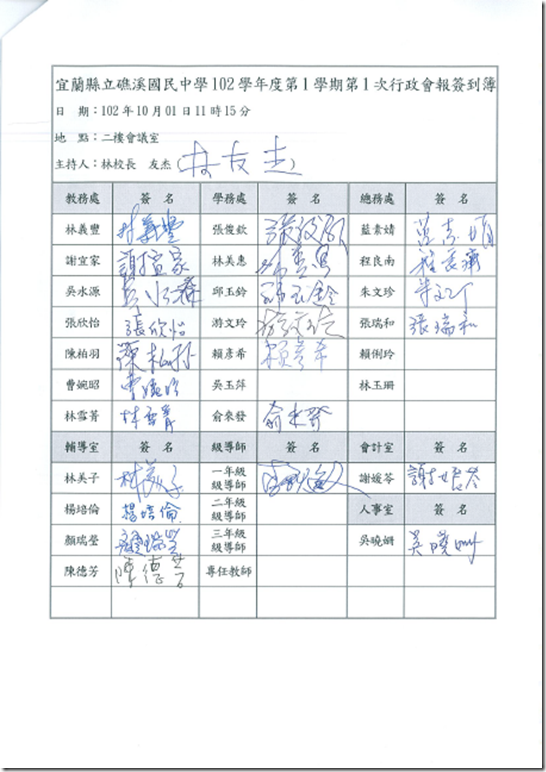 宜蘭縣立礁溪國民中學102學年度第1學期第1次行政會報簽到簿
日 期：102年10月01日11時15分
地 點：二樓會議室
主持人：林校長 友杰(林友杰)
教務處 簽 名 學務處 簽 名 總務處 簽 名
林義豐 林義豐 張俊欽 藍素婧
謝宜家 謝宜家 林美惠 林美惠 程良南
吳水源 邱玉鈴 邱玉鈴 朱文珍
張欣怡 張欣怡 游文玲 張瑞和 張瑞和
陳柏羽 賴彥希 賴彥希 賴俐玲
曹婉昭 曹婉昭 吳玉萍 林玉珊
林雪菁 林雪菁 俞來發 俞來發
輔導室 簽 名 級導師 簽 名 會計室 簽 名
林美子 林美子 一年級級導師 謝媛芩
楊培倫 楊培倫 二年級級導師 人事室 簽 名
顏瑞瑩 顏瑞瑩 三年級級導師 吳曉娟
陳德芳 陳德芳 專任教師